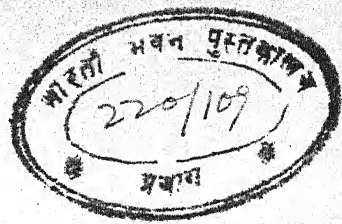 भारती भवन पुस्तकालय
220/109
प्रयाग